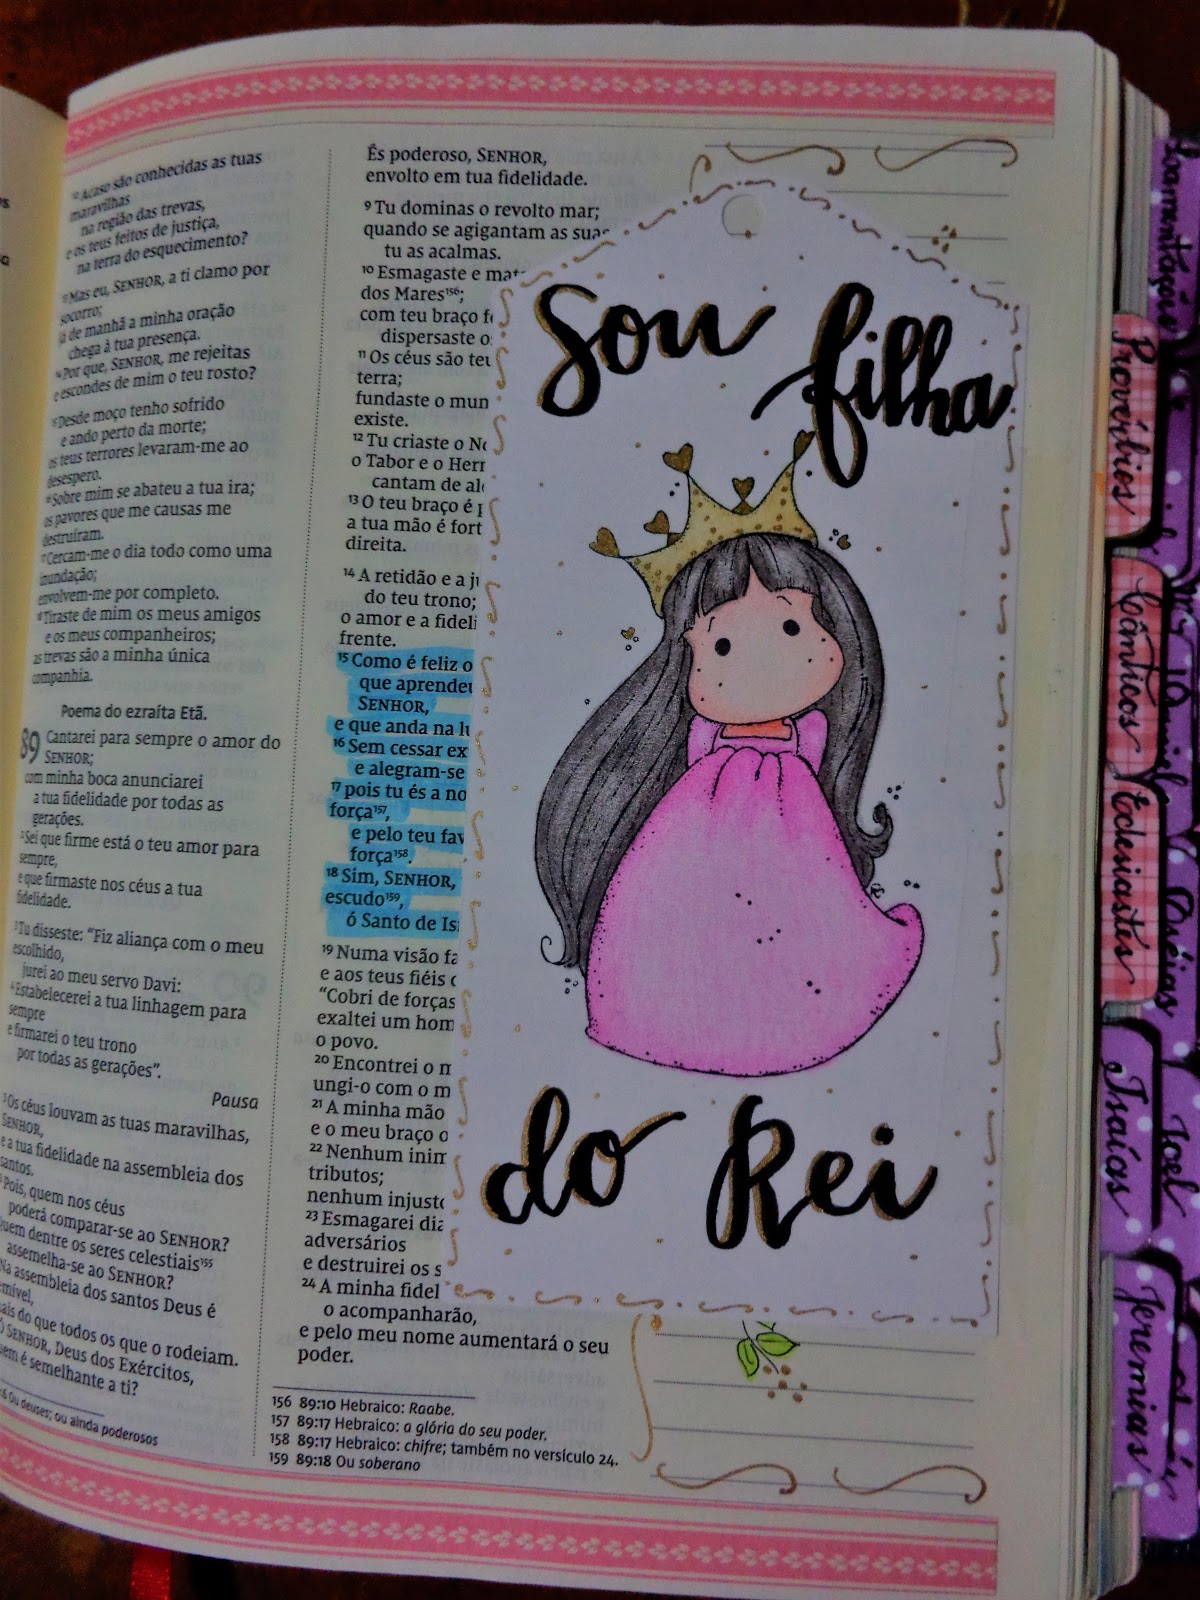 12 Acaso são conhecidas as tuas
maravilhas
na região das trevas,
e os teus feitos de justiça,
na terra do esquecimento?
13 Mas eu, SENHOR, a ti clamo por
socorro;
já de manhã a minha oração
chega à tua presença.
14 Por que, SENHOR, me rejeitas
e escondes de mim o teu rosto?
15 Desde moço tenho sofrido
e ando perto da morte;
os teus terrores levaram-me ao
desespero.
16 Sobre mim se abateu a tua ira;
os pavores que me causas me
destruíram.
17 Cercam-me o dia todo como uma
inundação;
envolvem-me por completo.
18 Tiraste de mim os meus amigos
e os meus companheiros;
as trevas são a minha única
companhia.
Poema do ezraíta Etã.
89 Cantarei para sempre o amor do
SENHOR;
com minha boca anunciarei
a tua fidelidade por todas as
gerações.
2 Sei que firme está o teu amor para
sempre,
e que firmaste nos céus a tua
fidelidade.
3 Tu disseste: “Fiz aliança com o meu
escolhido,
jurei ao meu servo Davi:
4 Estabelecerei a tua linhagem para
sempre
e firmarei o teu trono
por todas as gerações”.
Pausa
5 Os céus louvam as tuas maravilhas,
SENHOR,
e a tua fidelidade na assembleia dos
santos.
6 Pois, quem nos céus
poderá comparar-se ao SENHOR?
Quem dentre os seres celestiais155
assemelha-se ao SENHOR?
Na assembleia dos santos Deus é
mais do que todos os que o rodeiam.
Ó SENHOR, Deus dos Exércitos,
quem é semelhante a ti?
Ou deuses; ou ainda poderosos
És poderoso, SENHOR,
envolto em tua fidelidade.
9 Tu dominas o revolto mar;
quando se agigantam as suas
tu as acalmas.
10 Esmagaste e mat
dos Mares156;
com teu braço fo
dispersaste o
11 Os céus são teu
terra;
fundaste o mun
existe.
12 Tu criaste o No
o Tabor e o Herm
cantam de ale
13 O teu braço é p
a tua mão é fort
direita.
14 A retidão e a ju
do teu trono;
o amor e a fideli
frente.
15 Como é feliz o
que aprendeu
SENHOR,
e que anda na lu
16 Sem cessar ex
e alegram-se
17 pois tu és a no
força157,
e pelo teu fav
força158.
18 Sim, SENHOR,
escudo159,
ó Santo de Is
19 Numa visão fa
e aos teus fiéis d
“Cobri de forças
exaltei um hom
o povo.
20 Encontrei o m
ungi-o com o m
21 A minha mão
e o meu braço o
22 Nenhum inim
tributos;
nenhum injusto
23 Esmagarei dia
adversários
e destruirei os s
24 A minha fidel
o acompanharão,
e pelo meu nome aumentará o seu
poder.
156 89:10 Hebraico: Raabe.
157 89:17 Hebraico: a glória do seu poder.
158 89:17 Hebraico: chifre; também no versículo 24.
159 89:18 Ou soberano
Sou
filha
do Rei
Provérbios
Cânticos
Eclesiastes
Isaías
Jeremias
Joel